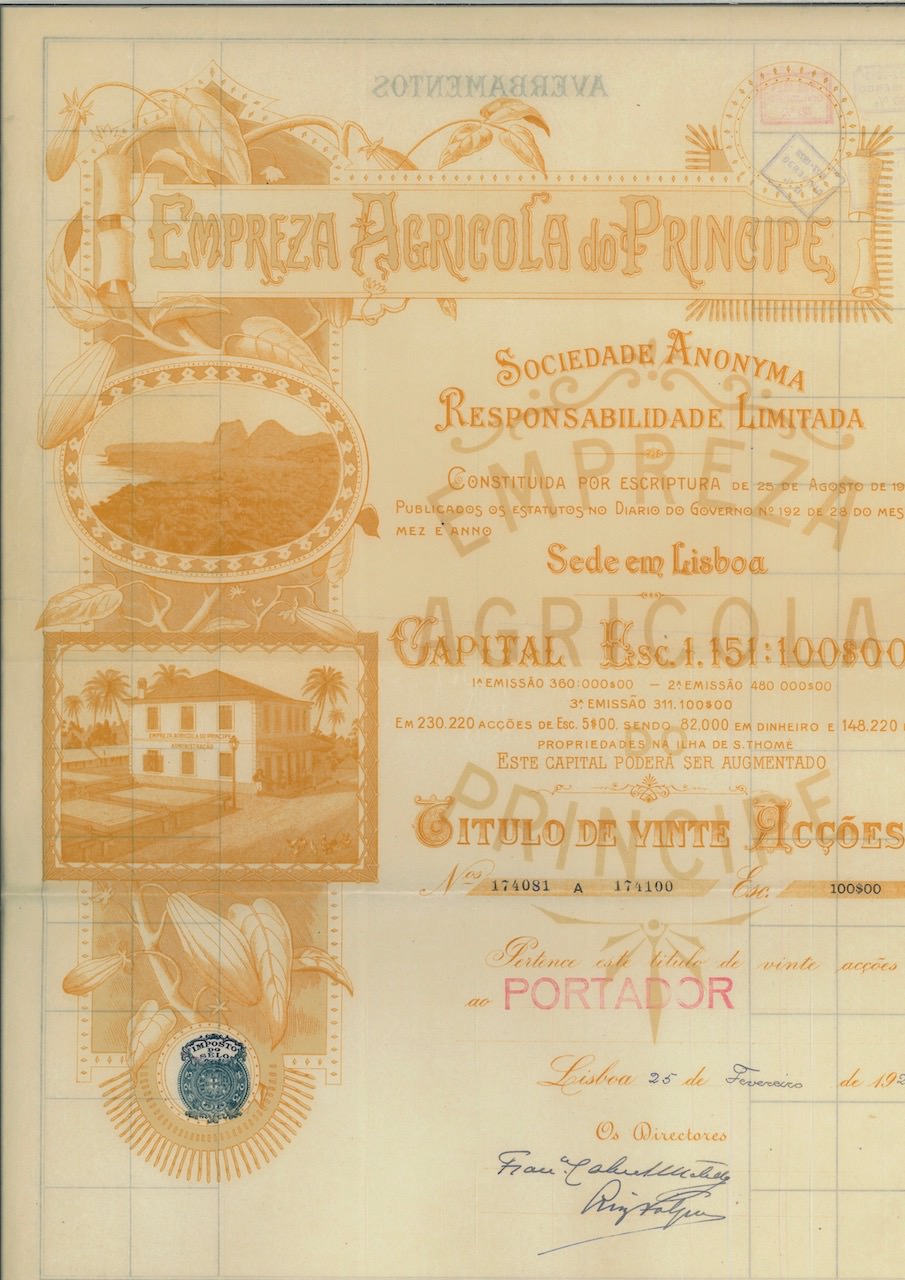 AVERBAMENTOS
EMPREZA AGRICOLA do PRINCIPE
SOCIEDADE ANONYMA
RESPONSABILIDADE LIMITADA
CONSTITUIDA POR ESCRIPTURA DE 25 DE AGOSTO DE 19
PUBLICADOS OS ESTATUTOS NO DIARIO DO GOVERNO Nº 192 DE 28 DO MES
MEZ E ANNO
Sede em Lisboa
CAPITAL ESC. 1.151:100$00
1ª EMISSÃO 360:000$00 — 2ª EMISSÃO 480 000$00
3ª EMISSÃO 311.100$00
EM 230.220 ACCÕES DE ESC. 5$00, SENDO 82.000 EM DINHEIRO E 148.220
PROPRIEDADES NA ILHA DE S. THOMÉ
ESTE CAPITAL PODERÁ SER AUGMENTADO
EMPREZA AGRICOLA DO PRINCIPE
ADMINISTRAÇÃO
TITULO DE VINTE ACÇÕES
Nos 174081 A 174100 Esc. 100$00
Pertence este titulo de vinte acções
ao PORTADOR
Lisboa 25 de Fevereiro de 192
Os Directores
IMPOSTO
DO
SELO
EMPREZA
AGRICOLA
DO
PRINCIPE